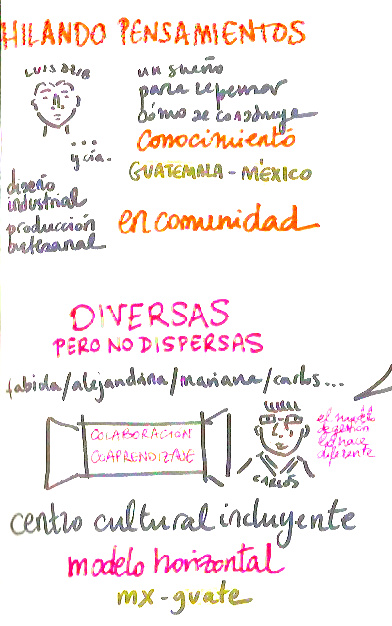 HILANDO PENSAMIENTOS
LUIS
... y cía.
un sueño
para repensar
cómo se construye
conocimiento
GUATEMALA - MÉXICO
en comunidad
diseño
industrial
producción
artesanal
DIVERSAS
PERO NO DISPERSAS
fabiola/alejandrina/mariana/carlos...
COLABORACIÓN
COAPRENDIZAJE
CARLOS
el modelo
de gestión
lo hace
diferente
centro cultural incluyente
modelo horizontal
mx-guate